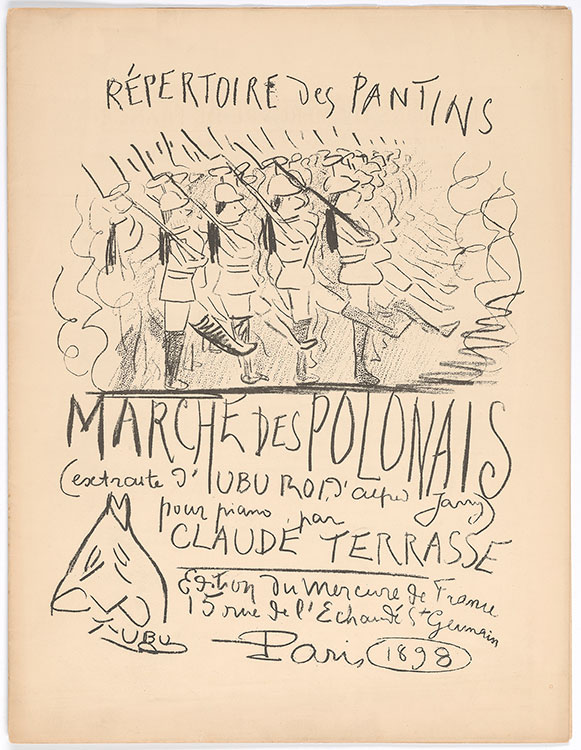 RÉPERTOIRE des PANTINS
MARCHE DES POLONAIS
(extraite d'UBU ROI, d'alfred Jarry)
pour piano par
CLAUDE TERRASSE
UBU
Edition du Mercure de France
15 rue de l'Echaudé St Germain
Paris 1898